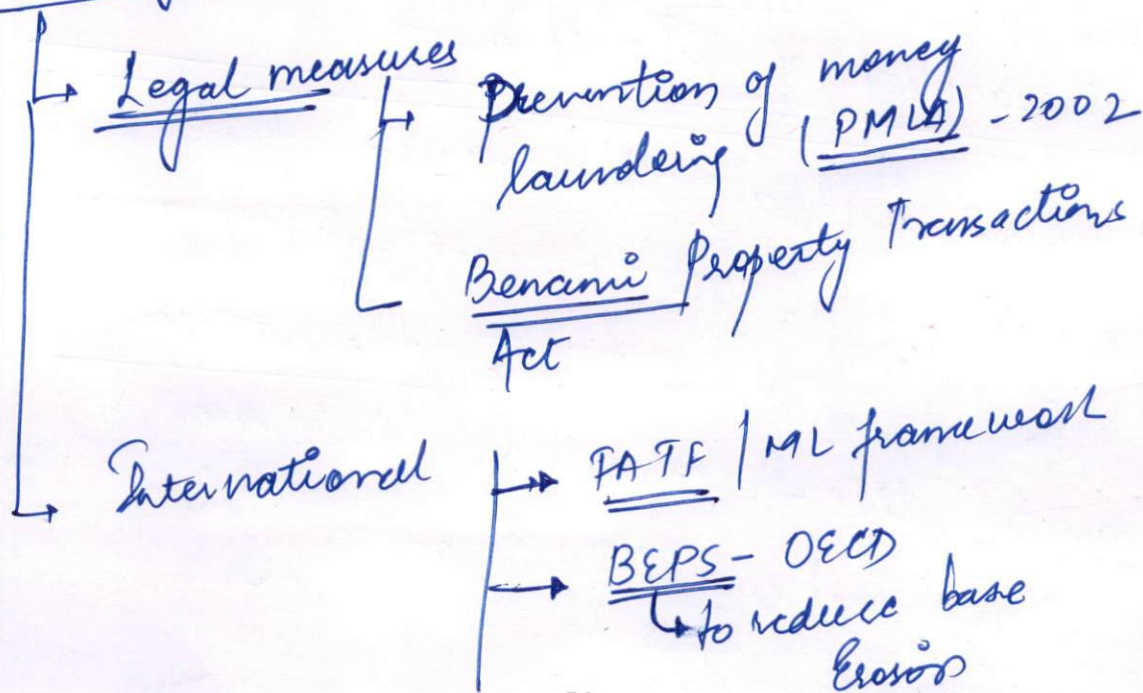 Legal measures
Prevention of money
laundering (PMLA) - 2002
Benami Property Transactions
Act
International
FATF / ML framework
BEPS - OECD
to reduce base
Erosion